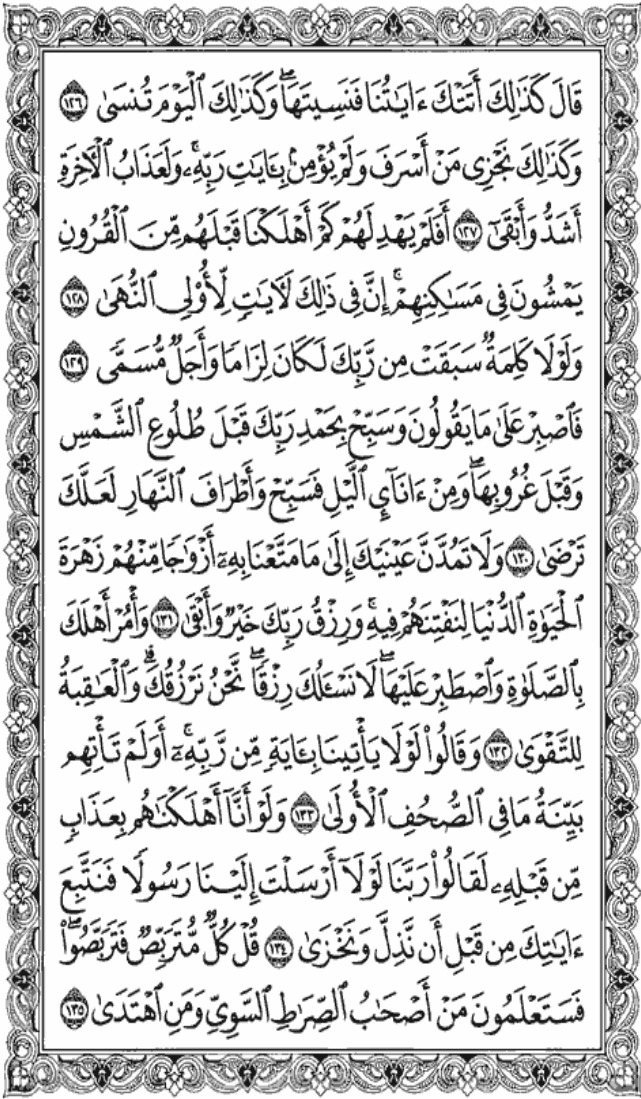 قَالَ كَذَٰلِكَ أَتَتْكَ ءَايَٰتُنَا فَنَسِيتَهَاۖ وَكَذَٰلِكَ ٱلْيَوْمَ تُنسَىٰ ١٢٦
وَكَذَٰلِكَ نَجْزِى مَنْ أَسْرَفَ وَلَمْ يُؤْمِنۢ بِـَٔايَٰتِ رَبِّهِۦۚ وَلَعَذَابُ ٱلْءَاخِرَةِ
أَشَدُّ وَأَبْقَىٰٓ ١٢٧ أَفَلَمْ يَهْدِ لَهُمْ كَمْ أَهْلَكْنَا قَبْلَهُم مِّنَ ٱلْقُرُونِ
يَمْشُونَ فِى مَسَٰكِنِهِمْۗ إِنَّ فِى ذَٰلِكَ لَءَايَٰتٍ لِّأُو۟لِى ٱلنُّهَىٰ ١٢٨
وَلَوْلَا كَلِمَةٌ سَبَقَتْ مِن رَّبِّكَ لَكَانَ لِزَامًا وَأَجَلٌ مُّسَمًّى ١٢٩
فَٱصْبِرْ عَلَىٰ مَا يَقُولُونَ وَسَبِّحْ بِحَمْدِ رَبِّكَ قَبْلَ طُلُوعِ ٱلشَّمْسِ
وَقَبْلَ غُرُوبِهَاۖ وَمِنْ ءَانَآئِ ٱلَّيْلِ فَسَبِّحْ وَأَطْرَافَ ٱلنَّهَارِ لَعَلَّكَ
تَرْضَىٰ ١٣٠ وَلَا تَمُدَّنَّ عَيْنَيْكَ إِلَىٰ مَا مَتَّعْنَا بِهِۦٓ أَزْوَٰجًا مِّنْهُمْ زَهْرَةَ
ٱلْحَيَوٰةِ ٱلدُّنْيَا لِنَفْتِنَهُمْ فِيهِۚ وَرِزْقُ رَبِّكَ خَيْرٌ وَأَبْقَىٰ ١٣١ وَأْمُرْ أَهْلَكَ
بِٱلصَّلَوٰةِ وَٱصْطَبِرْ عَلَيْهَاۖ لَا نَسْـَٔلُكَ رِزْقًاۖ نَّحْنُ نَرْزُقُكَۗ وَٱلْعَٰقِبَةُ
لِلتَّقْوَىٰ ١٣٢ وَقَالُوا۟ لَوْلَا يَأْتِينَا بِـَٔايَةٍ مِّن رَّبِّهِۦٓۚ أَوَلَمْ تَأْتِهِم
بَيِّنَةُ مَا فِى ٱلصُّحُفِ ٱلْأُولَىٰ ١٣٣ وَلَوْ أَنَّآ أَهْلَكْنَٰهُم بِعَذَابٍ
مِّن قَبْلِهِۦ لَقَالُوا۟ رَبَّنَا لَوْلَآ أَرْسَلْتَ إِلَيْنَا رَسُولًا فَنَتَّبِعَ
ءَايَٰتِكَ مِن قَبْلِ أَن نَّذِلَّ وَنَخْزَىٰ ١٣٤ قُلْ كُلٌّ مُّتَرَبِّصٌ فَتَرَبَّصُوا۟ۖ
فَسَتَعْلَمُونَ مَنْ أَصْحَٰبُ ٱلصِّرَٰطِ ٱلسَّوِىِّ وَمَنِ ٱهْتَدَىٰ ١٣٥